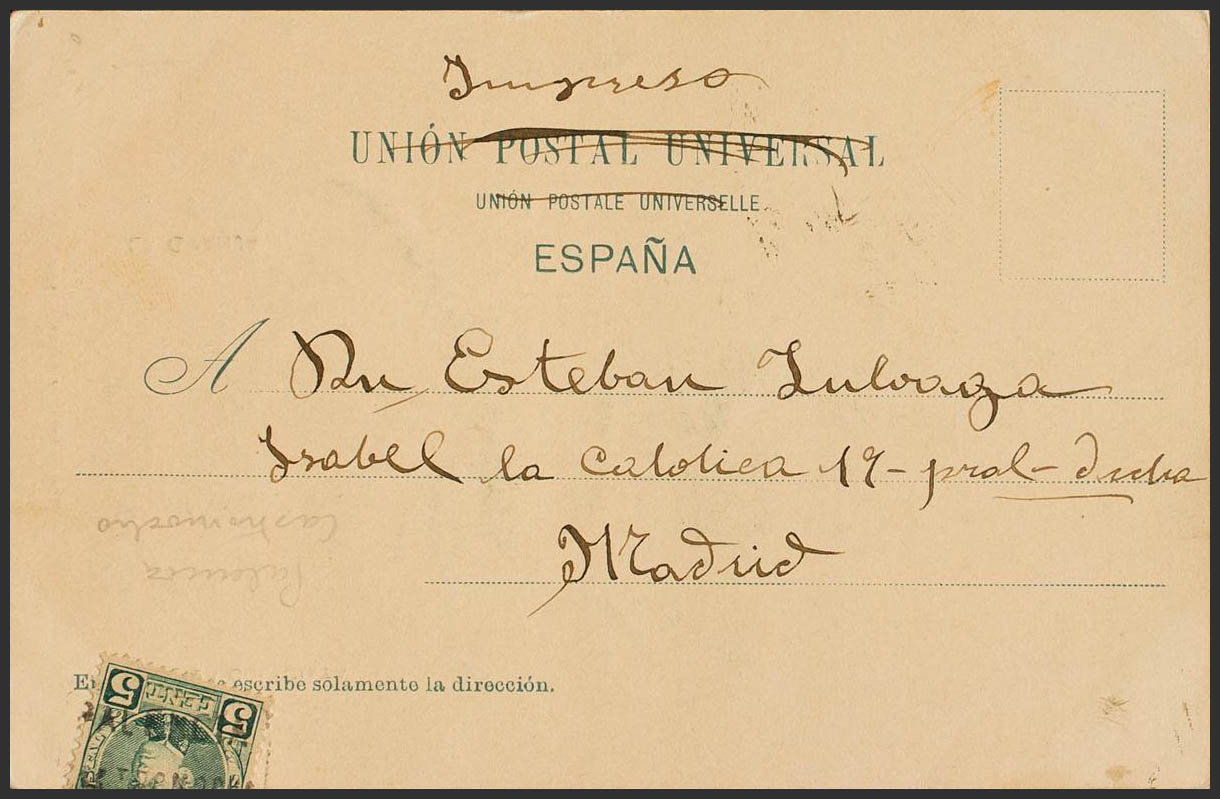 Impreso
UNIÓN POSTAL UNIVERSAL
UNIÓN POSTALE UNIVERSELLE
ESPAÑA
A Dn Esteban Zuloaga
Isabel la Catolica 19 - pral - dcha
Madrid
Castromocho
Palencia
escribe solamente la dirección.
5 5